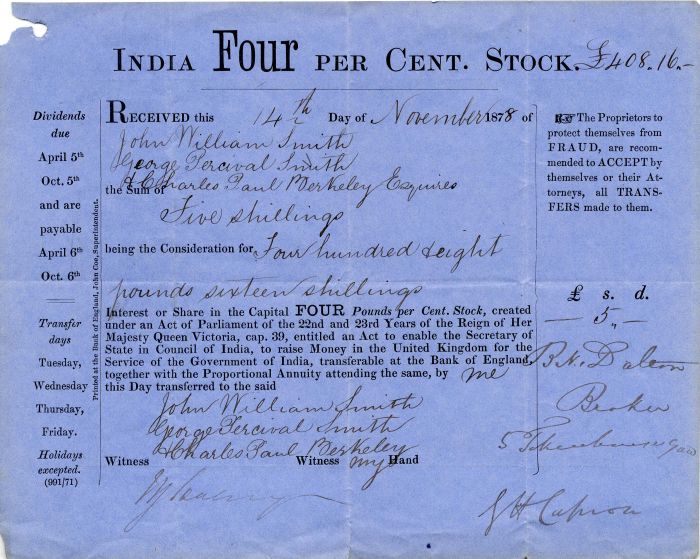 INDIA Four PER CENT. STOCK. £408.16.-
Dividends
due
April 5th
Oct. 5th
and are
payable
April 6th
Oct. 6th
Transfer
days
Tuesday,
Wednesday
Thursday,
Friday.
Holidays
excepted.
(991/71)
Printed at the Bank of England, John Coe, Superintendent.
RECEIVED this 14th Day of November 1878 of
John William Smith
George Percival Smith
& Charles Paul Berkeley Esquires
the Sum of
Five shillings
being the Consideration for Four hundred & eight
pounds sixteen shillings
Interest or Share in the Capital FOUR Pounds per Cent. Stock, created
under an Act of Parliament of the 22nd and 23rd Years of the Reign of Her
Majesty Queen Victoria, cap. 39, entitled an Act to enable the Secretary of
State in Council of India, to raise Money in the United Kingdom for the
Service of the Government of India, transferable at the Bank of England,
together with the Proportional Annuity attending the same, by me
this Day transferred to the said
John William Smith
George Percival Smith
& Charles Paul Berkeley
Witness Witness my Hand
☞ The Proprietors to
protect themselves from
FRAUD, are recom-
mended to ACCEPT by
themselves or their At-
torneys, all TRANS-
FERS made to them.
£ s. d.
— 5„ —
Broker